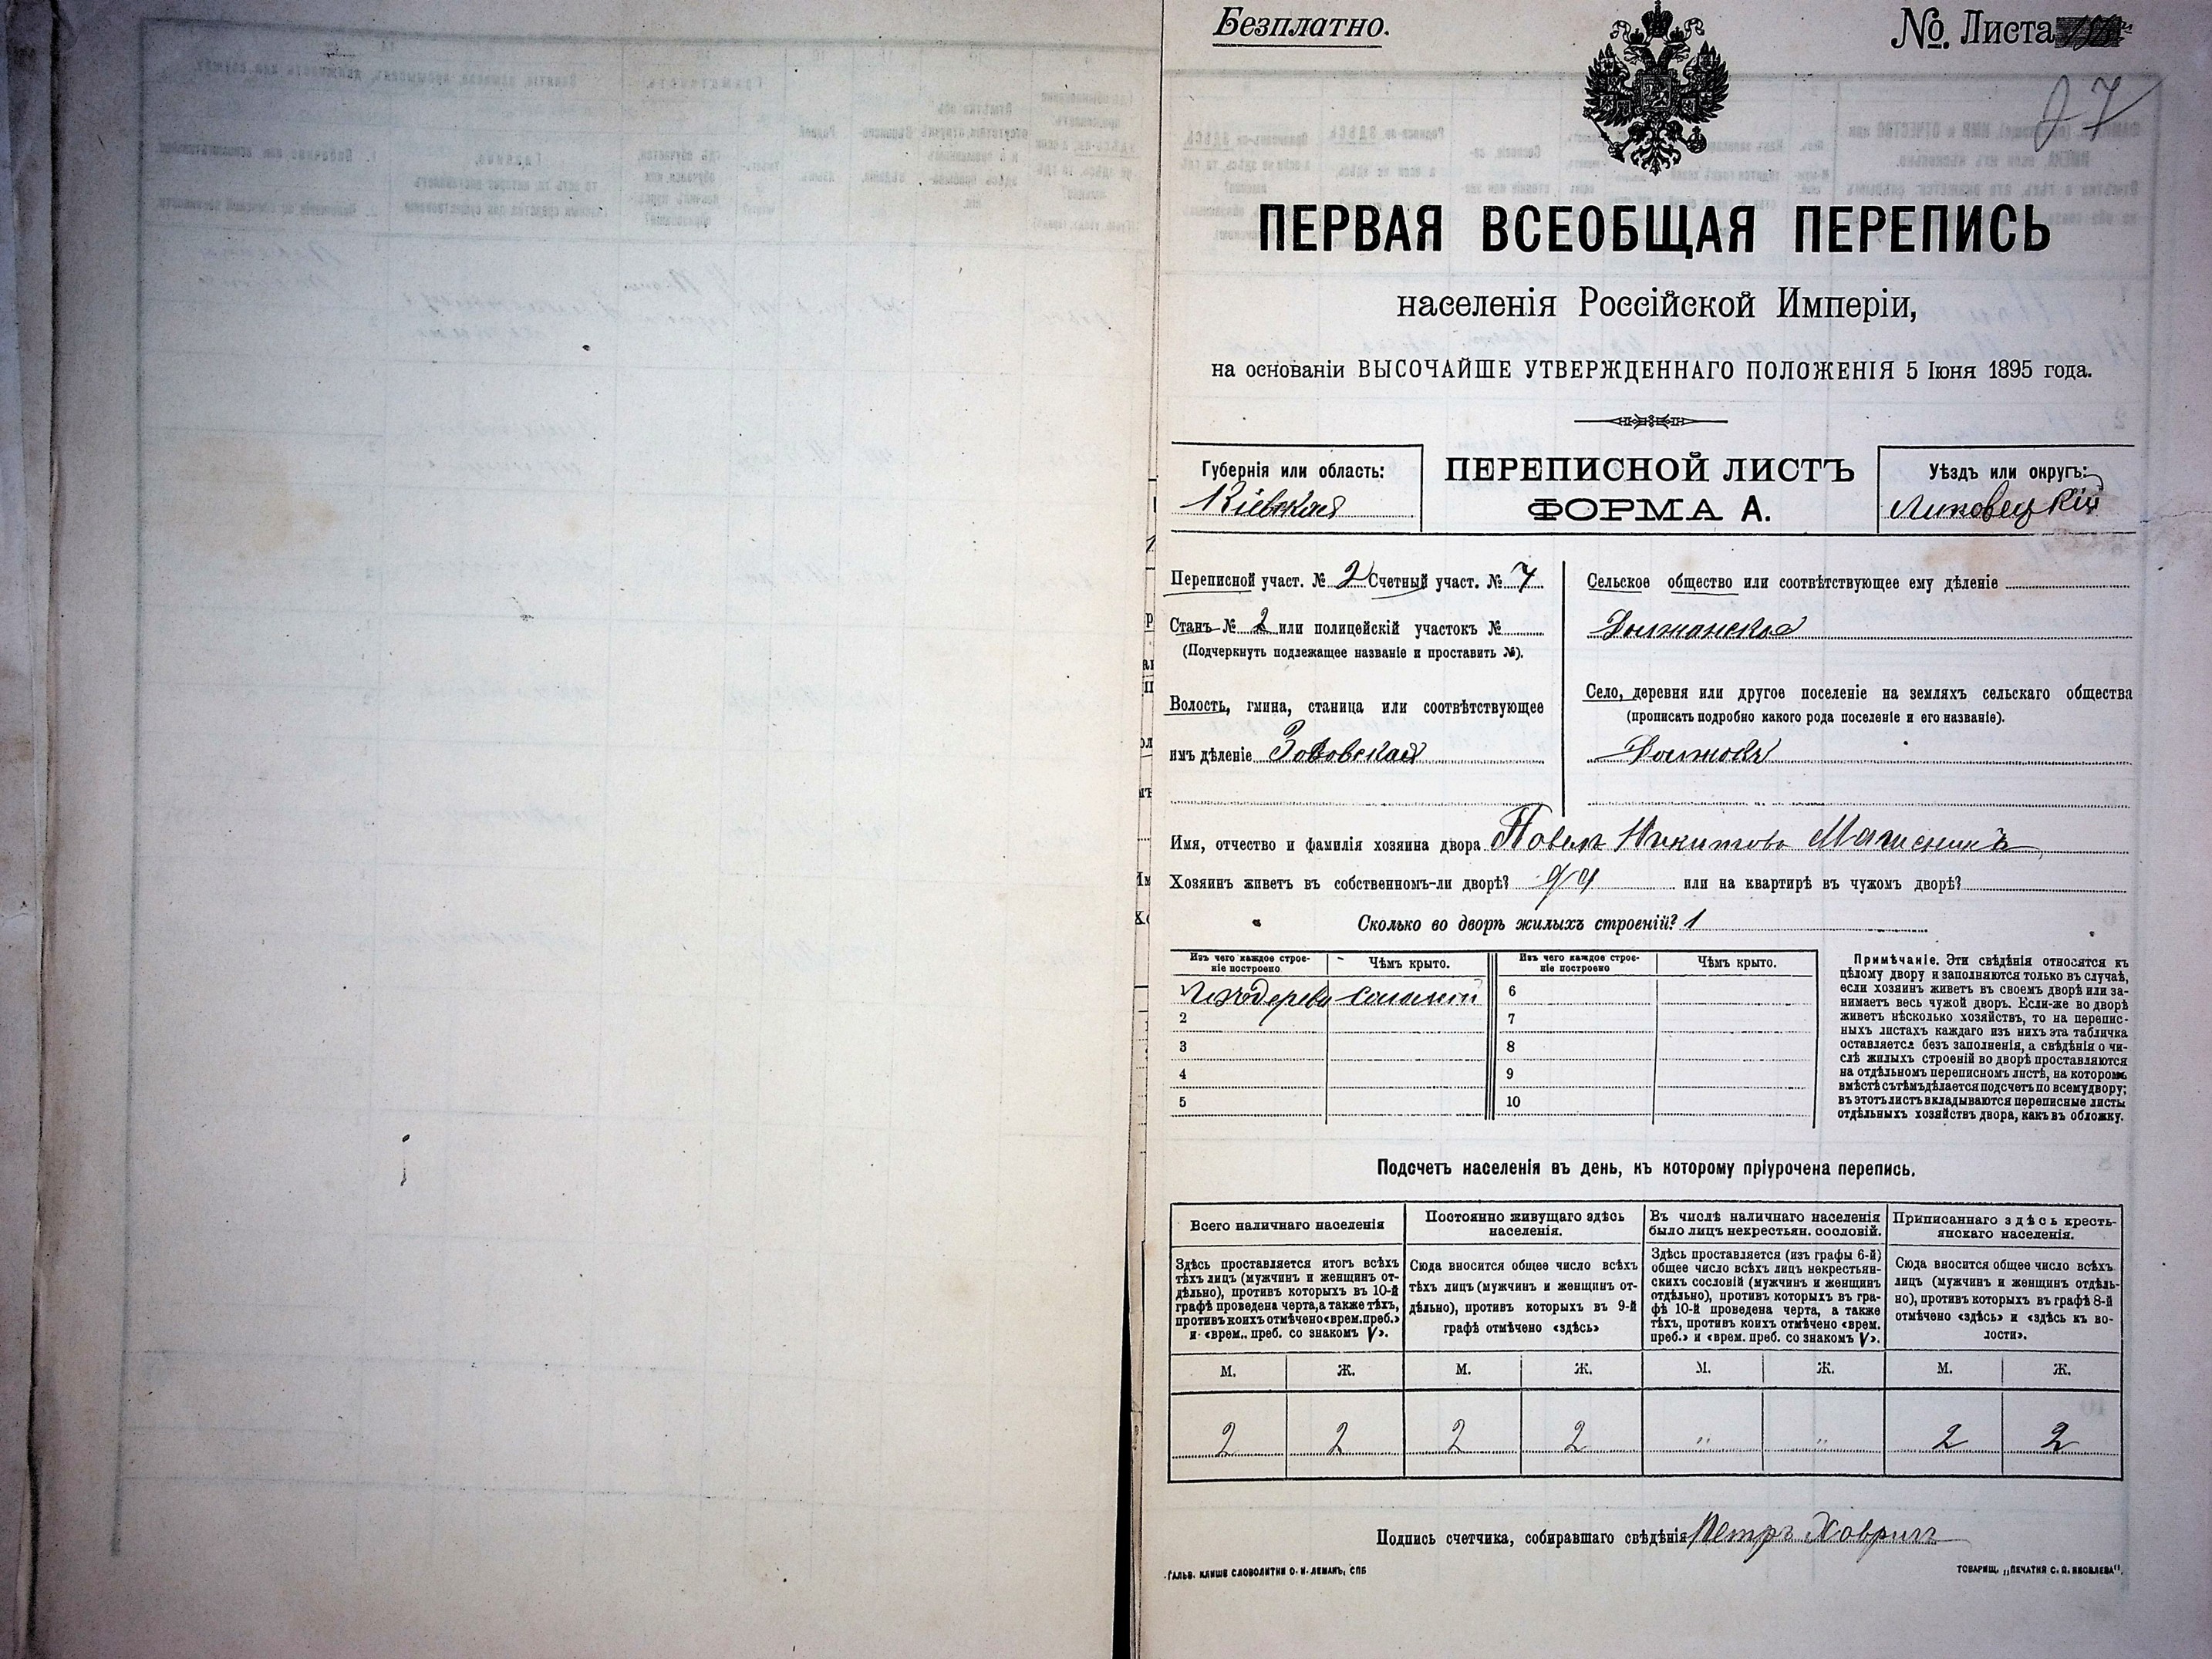 Безплатно.
№ Листа
27
ПЕРВАЯ ВСЕОБЩАЯ ПЕРЕПИСЬ
населенія Россійской Имперіи,
на основаніи ВЫСОЧАЙШЕ УТВЕРЖДЕННАГО ПОЛОЖЕНІЯ 5 Іюня 1895 года.
Губернія или область:
Кіевская
ПЕРЕПИСНОЙ ЛИСТЪ
ФОРМА А.
Уѣздъ или округъ:
Липовецкій
Переписной участ. № 2 Счетный участ. № 7
Станъ № 2 или полицейскій участокъ №
(Подчеркнуть подлежащее названіе и проставить №).
Волость, гмина, станица или соотвѣтствующее
имъ дѣленіе Зозовская
Сельское общество или соотвѣтствующее ему дѣленіе
Должанское
Село, деревня или другое поселеніе на земляхъ сельскаго общества
(прописать подробно какого рода поселеніе и его названіе).
Должокъ
Имя, отчество и фамилія хозяина двора Павелъ Никитовъ
Хозяинъ живетъ въ собственномъ-ли дворѣ? да или на квартирѣ въ чужомъ дворѣ?
Сколько во дворѣ жилыхъ строеній? 1
Изъ чего каждое строе-
ніе построено
Чѣмъ крыто.
Изъ чего каждое строе-
ніе построено
Чѣмъ крыто.
1 изъ дерева соломой
2
3
4
5
6
7
8
9
10
Примѣчаніе. Эти свѣдѣнія относятся къ
цѣлому двору и заполняются только въ случаѣ,
если хозяинъ живетъ въ своемъ дворѣ или за-
нимаетъ весь чужой дворъ. Если-же во дворѣ
живетъ нѣсколько хозяйствъ, то на перепис-
ныхъ листахъ каждаго изъ нихъ эта табличка
оставляется безъ заполненія, а свѣдѣнія о чи-
слѣ жилыхъ строеній во дворѣ проставляются
на отдѣльномъ переписномъ листѣ, на которомъ
вмѣстѣ съ тѣмъ дѣлается подсчетъ по всему двору;
въ этотъ листъ вкладываются переписные листы
отдѣльныхъ хозяйствъ двора, какъ въ обложку.
Подсчетъ населенія въ день, къ которому пріурочена перепись.
Всего наличнаго населенія
Здѣсь проставляется итогъ всѣхъ
тѣхъ лицъ (мужчинъ и женщинъ от-
дѣльно), противъ которыхъ въ 10-й
графѣ проведена черта, а также тѣхъ,
противъ коихъ отмѣчено «врем. преб.»
и «врем. преб. со знакомъ V».
Постоянно живущаго здѣсь
населенія.
Сюда вносится общее число всѣхъ
тѣхъ лицъ (мужчинъ и женщинъ от-
дѣльно), противъ которыхъ въ 9-й
графѣ отмѣчено «здѣсь»
Въ числѣ наличнаго населенія
было лицъ некрестьян. сословій.
Здѣсь проставляется (изъ графы 6-й)
общее число всѣхъ лицъ некрестьян-
скихъ сословій (мужчинъ и женщинъ
отдѣльно), противъ которыхъ въ гра-
фѣ 10-й проведена черта, а также
тѣхъ, противъ коихъ отмѣчено «врем.
преб.» и «врем. преб. со знакомъ V».
Приписаннаго здѣсь кресть-
янскаго населенія.
Сюда вносится общее число всѣхъ
лицъ (мужчинъ и женщинъ отдѣль-
но), противъ которыхъ въ графѣ 8-й
отмѣчено «здѣсь» и «здѣсь къ во-
лости».
М. Ж. М. Ж. М. Ж. М. Ж.
2 2 2 2 " " 2 2
Подпись счетчика, собиравшаго свѣдѣнія Петръ
ГАЛЬВ. КЛИШЕ СЛОВОЛИТНИ О. И. ЛЕМАНЪ, СПБ
ТОВАРИЩ. „ПЕЧАТНЯ С. П. ЯКОВЛЕВА".